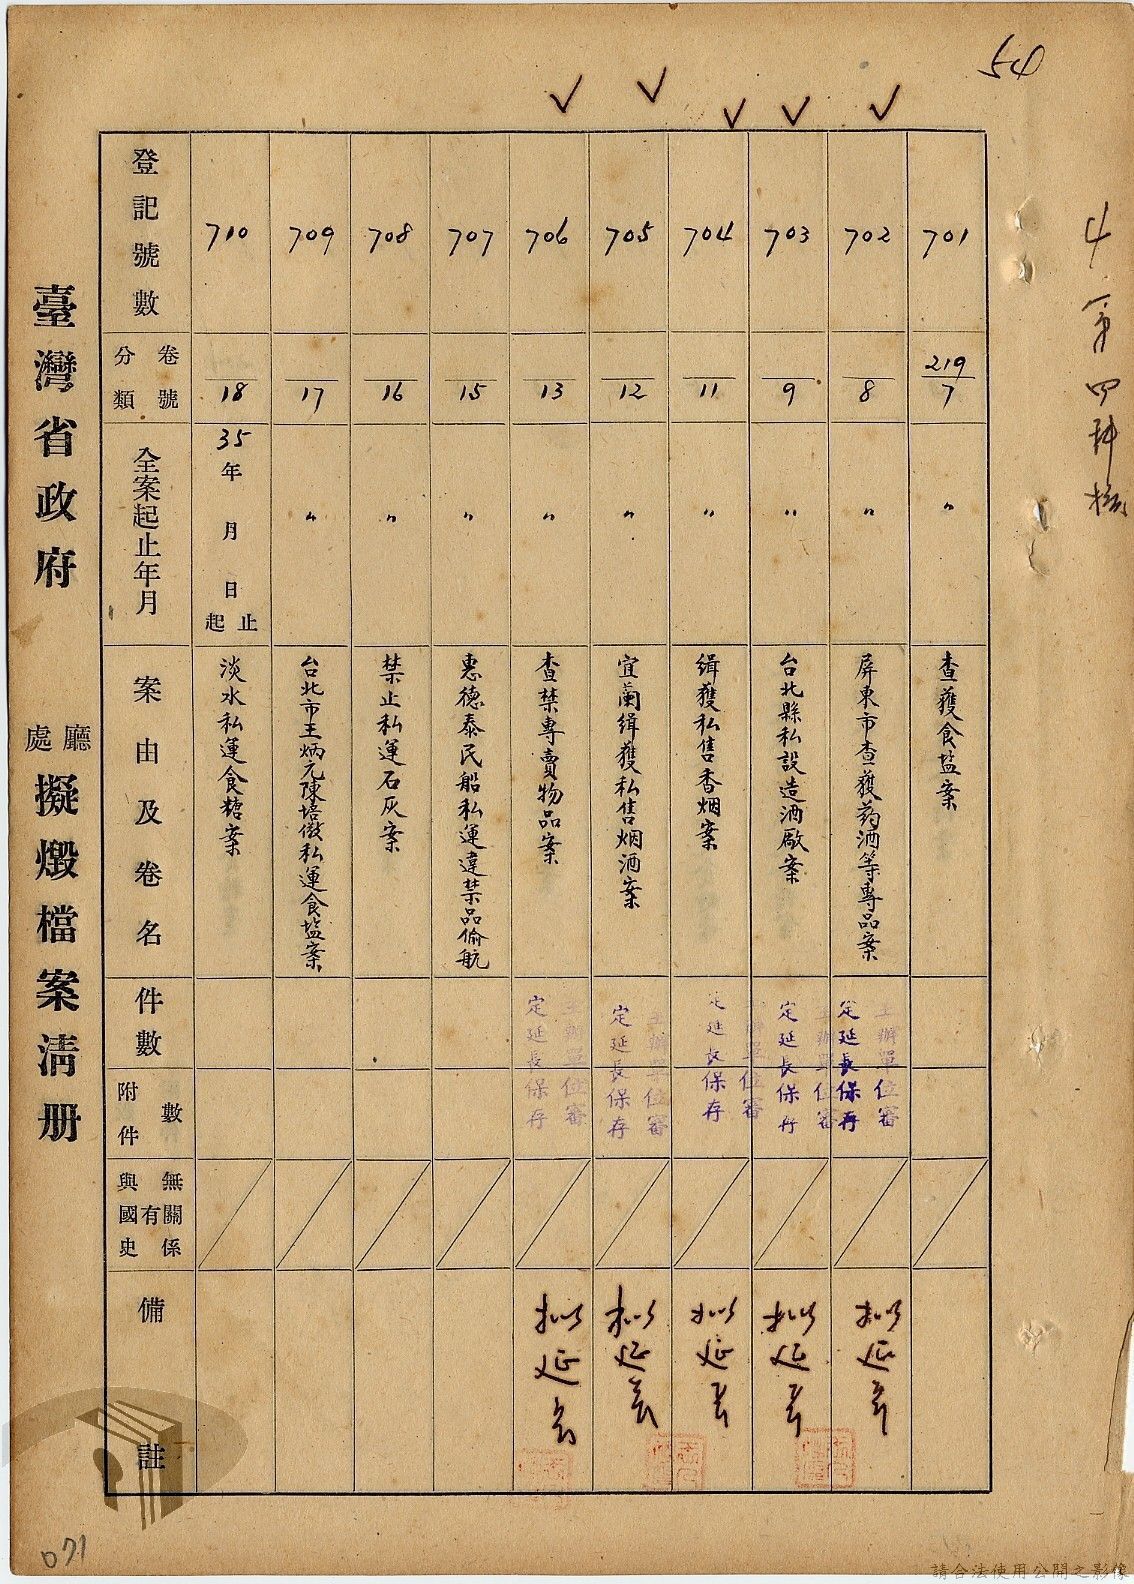 54
4
第四科檢
臺灣省政府 廳處 擬燬檔案清册
登記號數
卷號
分類
全案起止年月
案由及卷名
件數
附件數
與國史有無關係
備註
701
219/7
〃
查獲食塩案
702
8
〃
屏東市查獲葯酒等專品案
主辦單位審定延長保存
拟延長
703
9
〃
台北縣私設造酒廠案
主辦單位審定延長保存
拟延長
704
11
〃
緝獲私售香烟案
主辦單位審定延長保存
拟延長
705
12
〃
宜蘭緝獲私售烟酒案
主辦單位審定延長保存
拟延長
706
13
〃
查禁專賣物品案
主辦單位審定延長保存
拟延長
707
15
〃
惠德泰民船私運違禁品偷航
708
16
〃
禁止私運石灰案
709
17
〃
台北市王炳元陳培微私運食塩案
710
18
35年 月 日 起止
淡水私運食糖案
071
請合法使用公開之影像